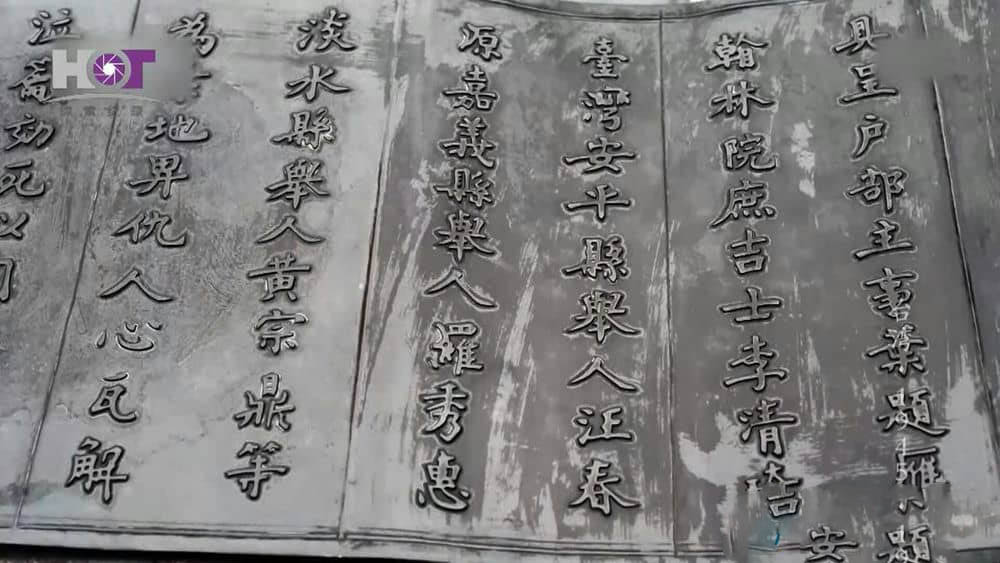 具呈户部主事葉題雁
翰林院庶吉士李清
安
臺灣安平縣舉人汪春
源嘉義縣舉人羅秀惠
淡水縣舉人黃宗鼎等
為 地畀仇人心瓦解
泣 効死以
HOT